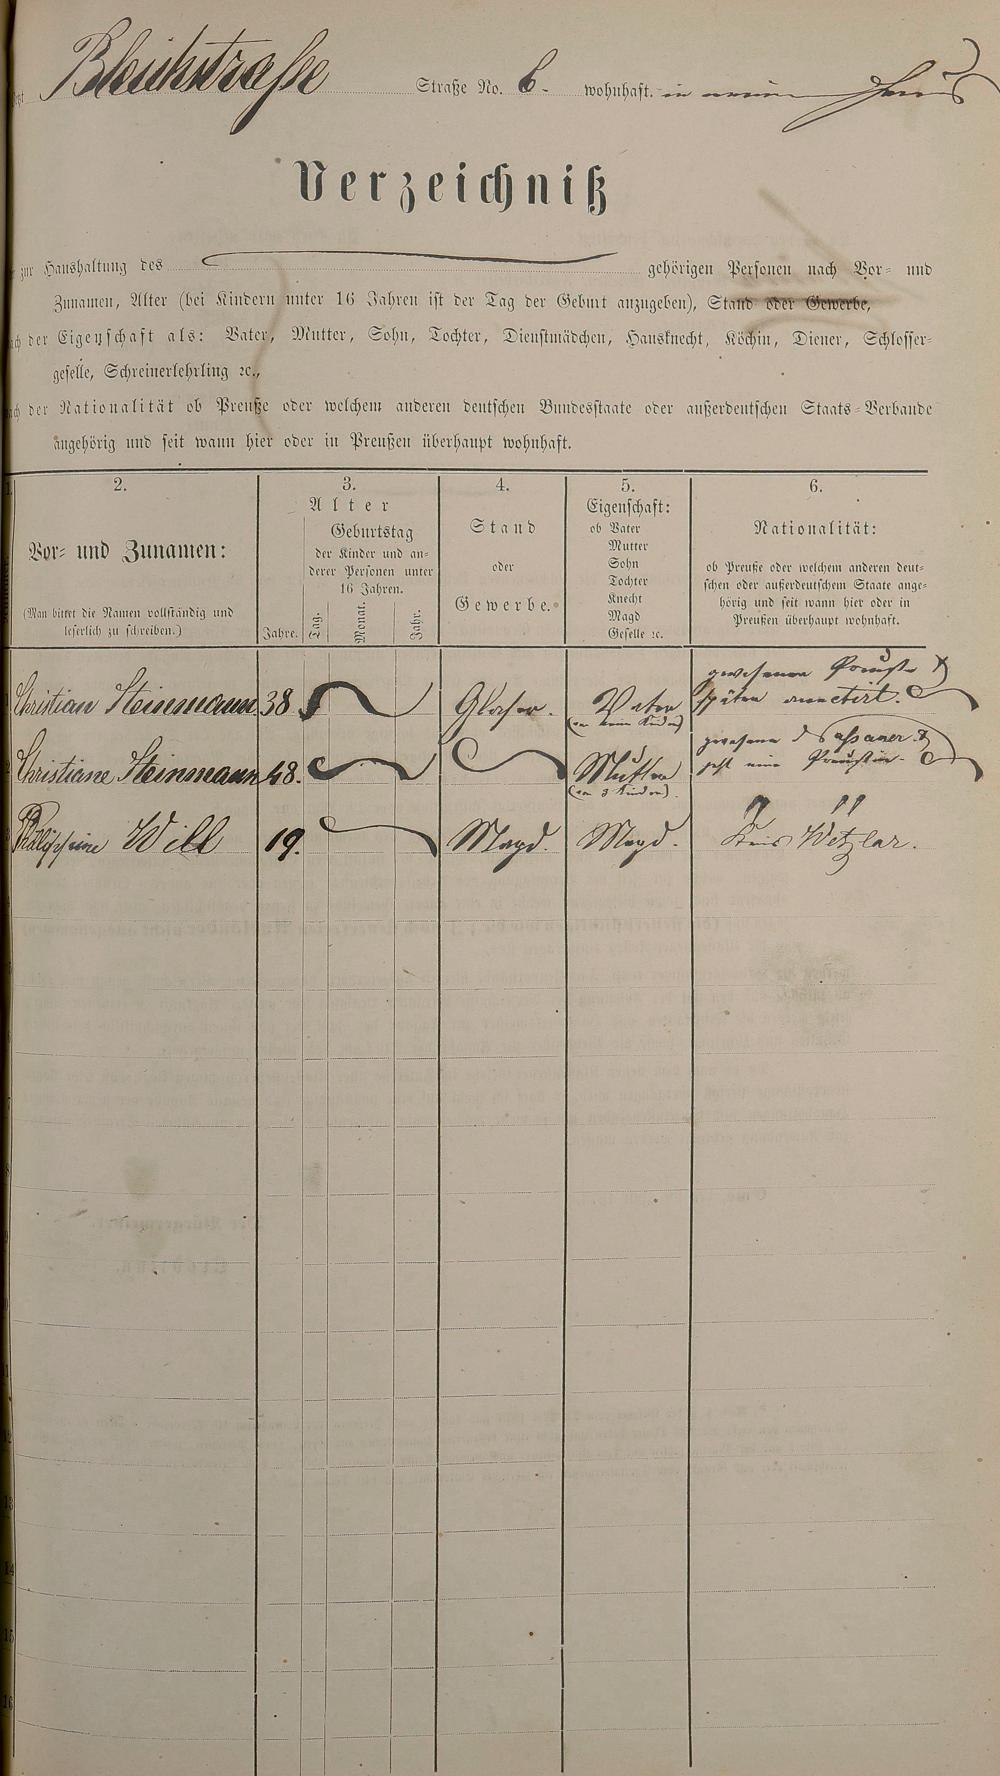 Jetzt Bleichstraße Straße No. 6. wohnhaft. in Haus
Verzeichniß
zur Haushaltung des gehörigen Personen nach Vor- und
Zunamen, Alter (bei Kindern unter 16 Jahren ist der Tag der Geburt anzugeben), Stand oder Gewerbe,
nach der Eigenschaft als: Vater, Mutter, Sohn, Tochter, Dienstmädchen, Hausknecht, Köchin, Diener, Schlosser-
geselle, Schreinerlehrling ꝛc.,
nach der Nationalität ob Preuße oder welchem anderen deutschen Bundesstaate oder außerdeutschen Staats-Verbande
angehörig und seit wann hier oder in Preußen überhaupt wohnhaft.
1. 2. 3. 4. 5. 6.
Vor- und Zunamen:
(Man bittet die Namen vollständig und
leserlich zu schreiben.)
Alter
Jahre.
Geburtstag
der Kinder und an-
derer Personen unter
16 Jahren.
Tag. Monat. Jahr.
Stand
oder
Gewerbe.
Eigenschaft:
ob Vater
Mutter
Sohn
Tochter
Knecht
Magd
Geselle ꝛc.
Nationalität:
ob Preuße oder welchem anderen deut-
schen oder außerdeutschem Staate ange-
hörig und seit wann hier oder in
Preußen überhaupt wohnhaft.
Christian Steinmann 38 Glaser. Vater
später
Christiane Steinmann 48. Mutter
(von 3 Kinder)
jetzt eine Preußin.
Will 19. Magd. Magd. Kreis Wetzlar.
13
14
15
16